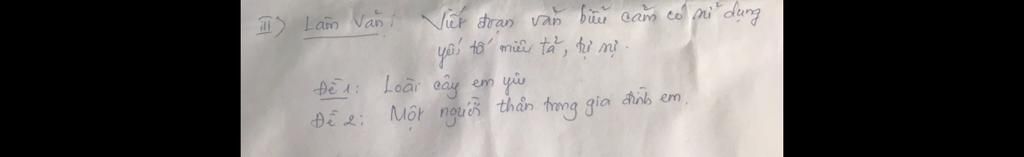 III) Làm Văn: Viết đoạn văn biểu cảm có sử dụng
yếu tố miêu tả, tự sự.
Đề 1: Loài cây em yêu
Đề 2: Một người thân trong gia đình em.